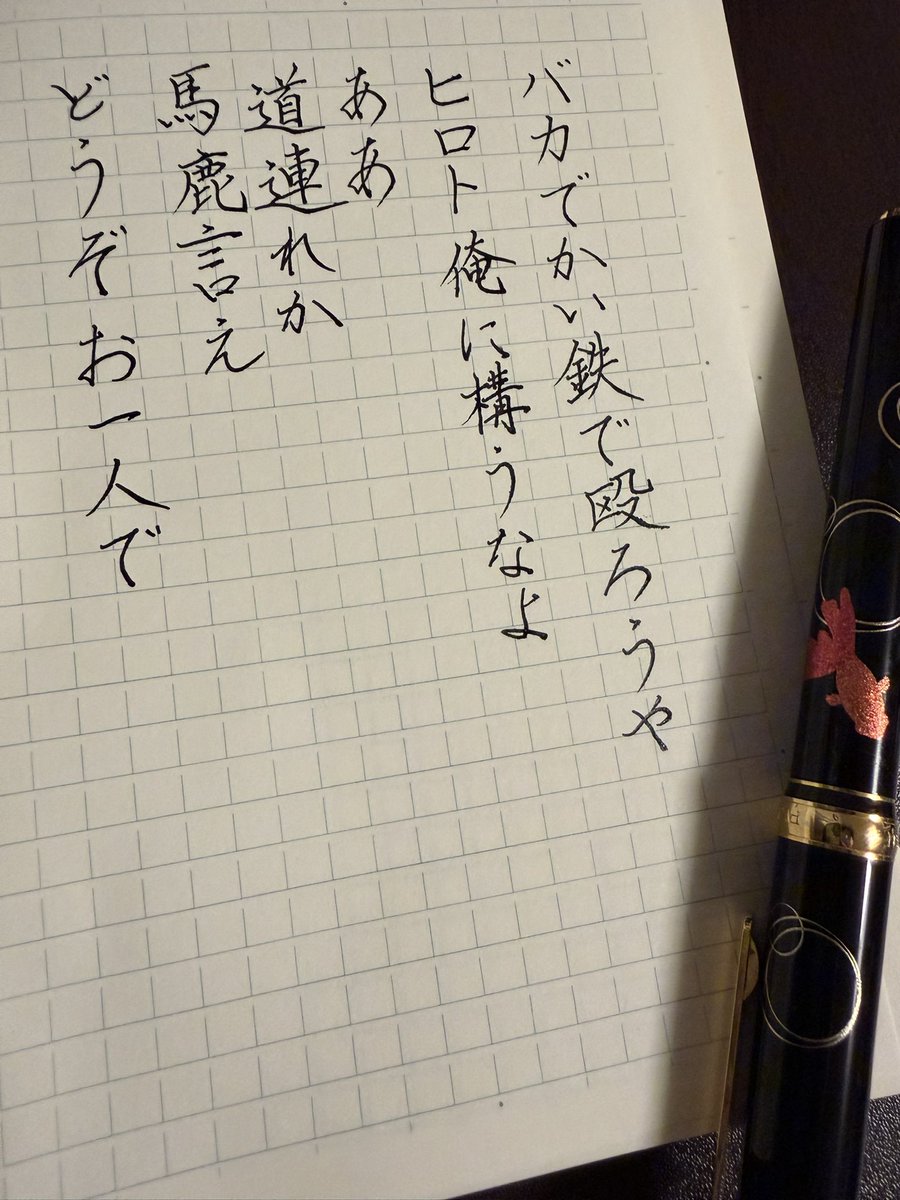 バカでかい鉄で殴ろうや
ヒロト俺に構うなよ
ああ
道連れか
馬鹿言え
どうぞお一人で